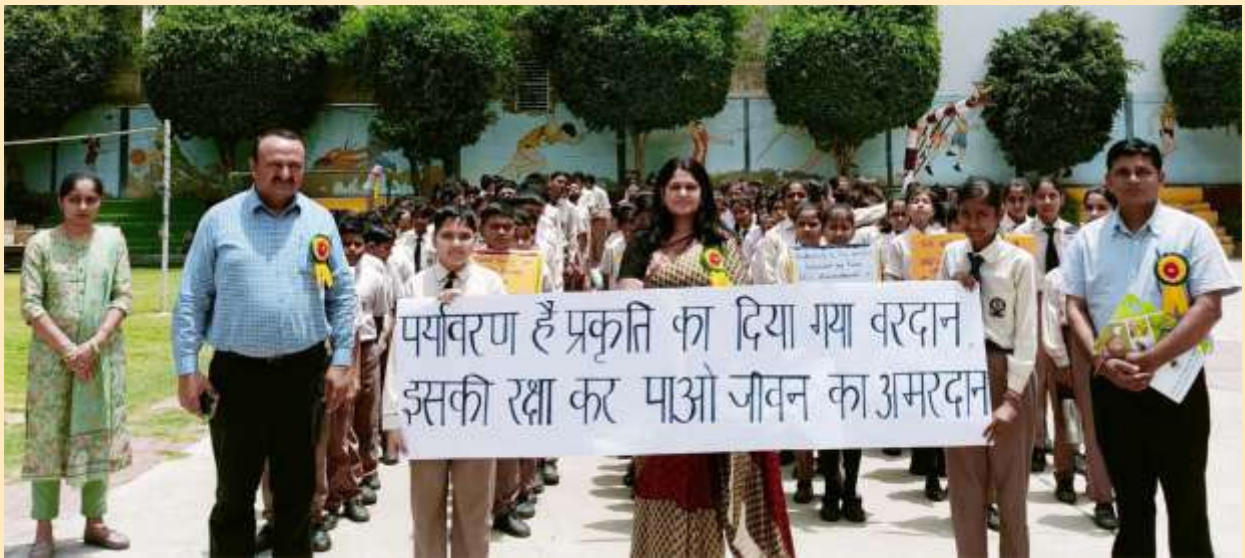 पर्यावरण है प्रकृति का दिया गया वरदान
इसकी रक्षा कर पाओ जीवन का अमरदान